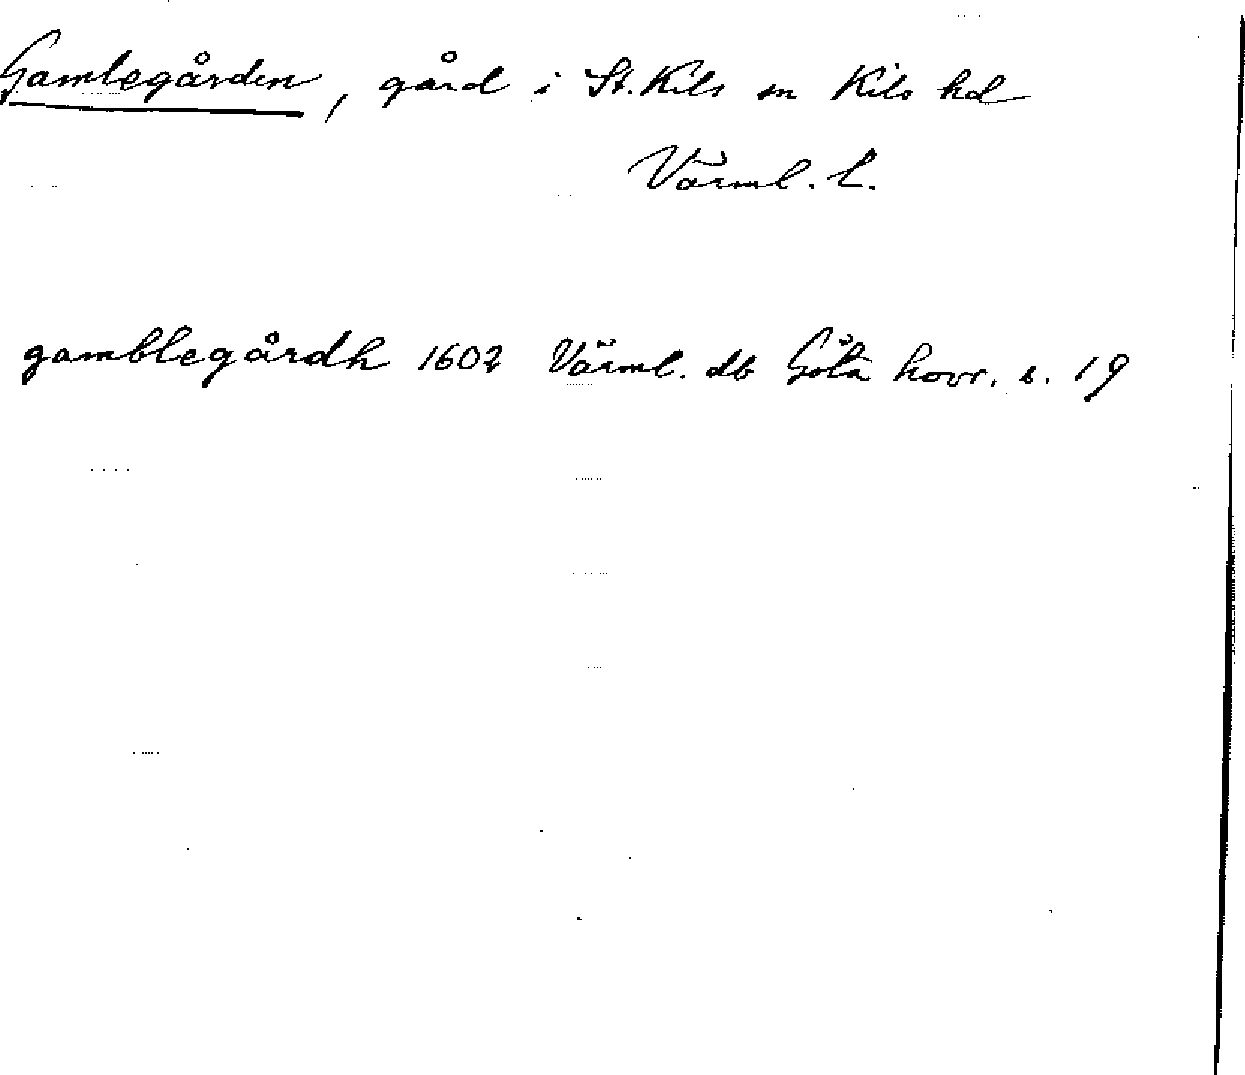 Gamlegården, gård i St. Kils sn Kils hd
Värml. l.
gamblegårdh 1602 Värml. db Göta hovr. s. 19